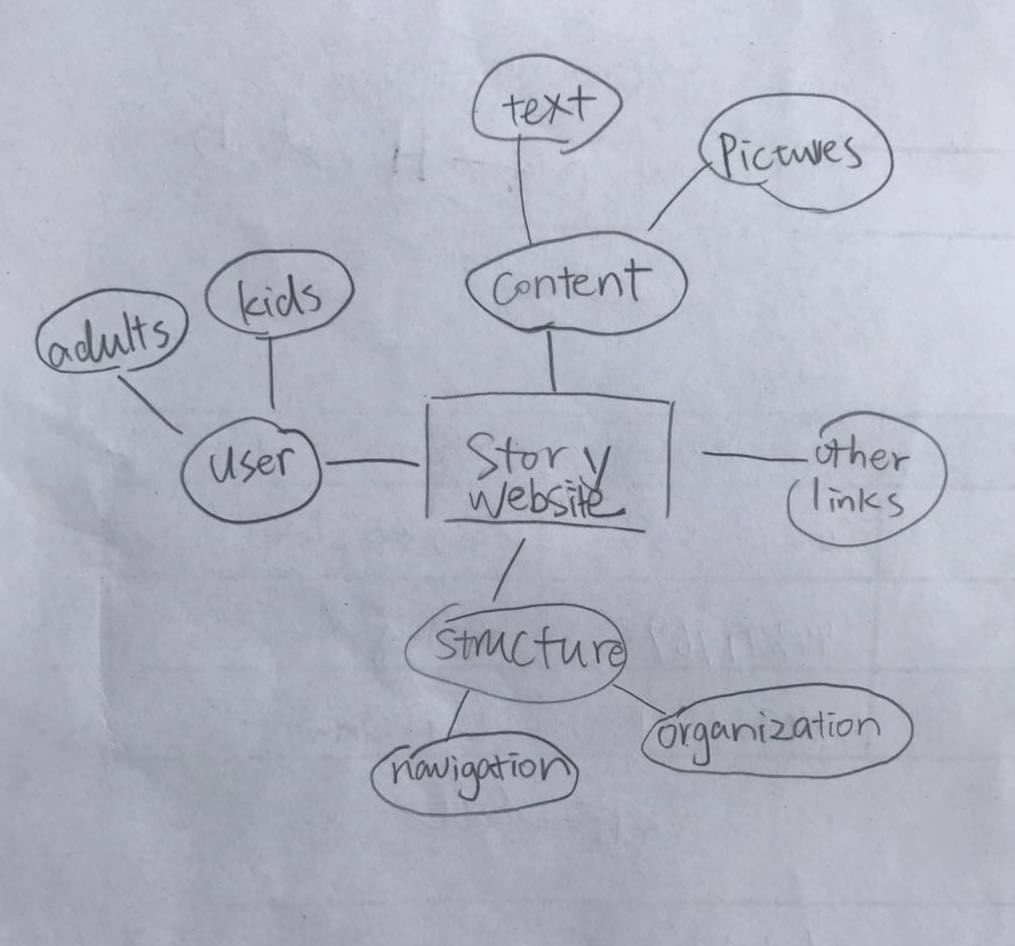 text
Pictures
content
kids
adults
user
Story
website
other
links
structure
organization
navigation